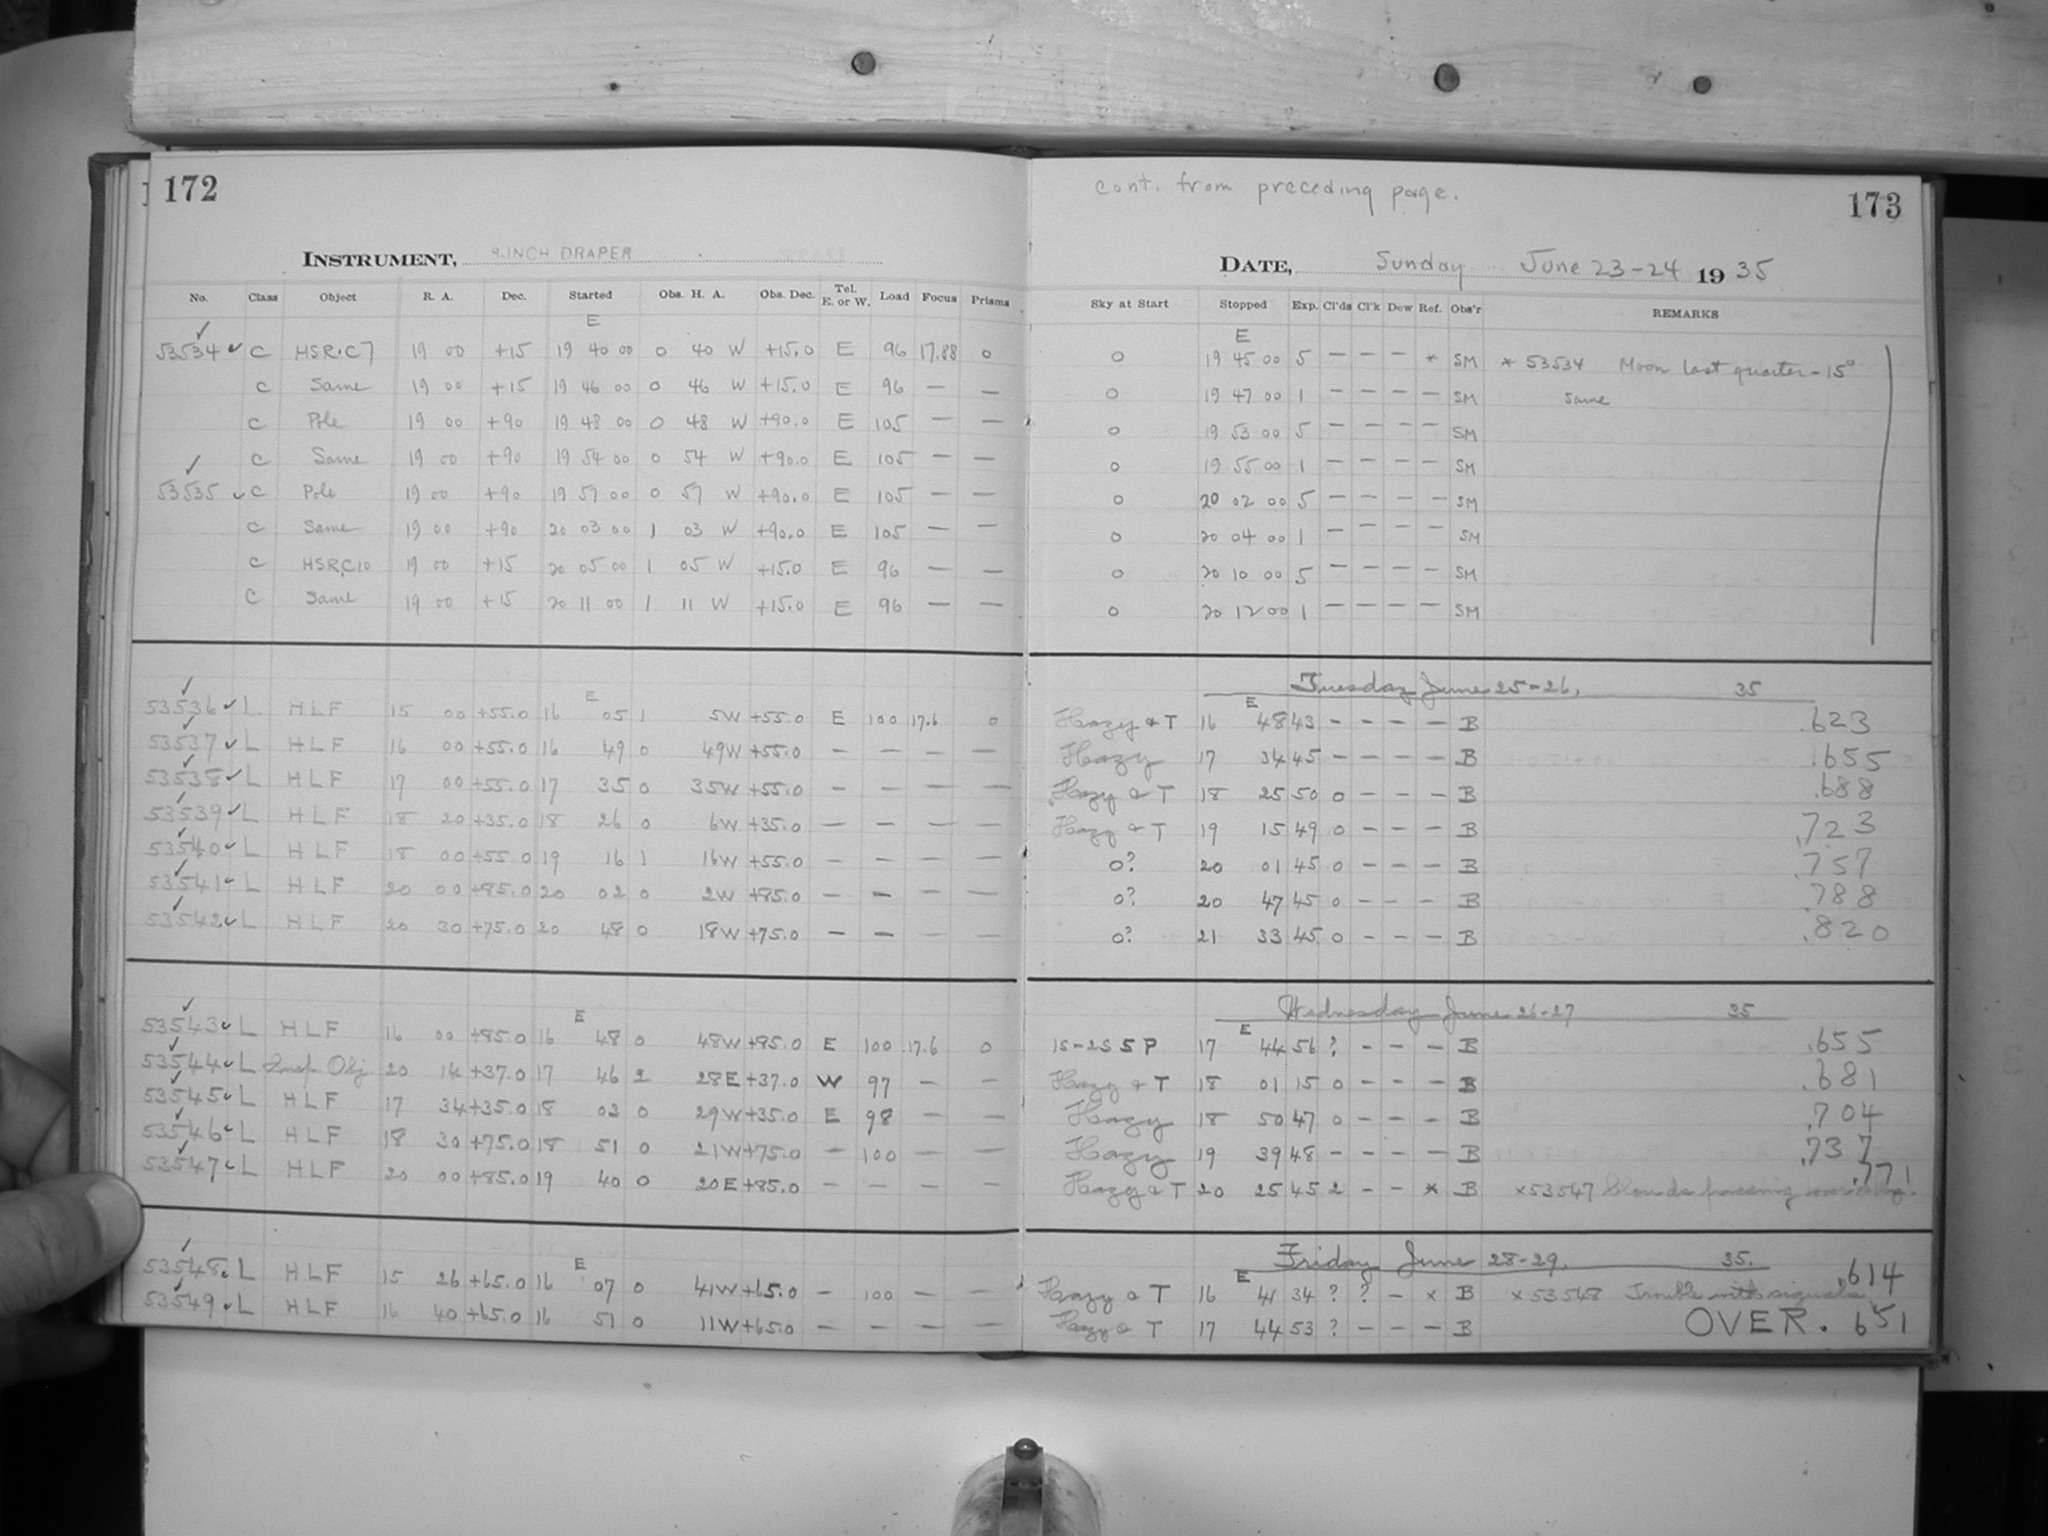 172
cont. from preceding page.
173
INSTRUMENT, 8-INCH DRAPER
DATE, Sunday June 23-24 1935
No. Class Object R. A. Dec. Started Obs. H. A. Obs. Dec. Tel. E. or W. Load Focus Prisms Sky at Start Stopped Exp. Cl'ds Cl'k Dew Ref. Obs'r REMARKS
E E
53534 ✓ C HSR.C7 19 00 +15 19 40 00 0 40 W +15.0 E 96 17.88 0 0 19 45 00 5 — — — * SM * 53534 Moon last quarter -15°
C Same 19 00 +15 19 46 00 0 46 W +15.0 E 96 — — 0 19 47 00 1 — — — — SM Same
C Pole 19 00 +90 19 48 00 0 48 W +90.0 E 105 — — 0 19 53 00 5 — — — — SM
C Same 19 00 +90 19 54 00 0 54 W +90.0 E 105 — — 0 19 55 00 1 — — — — SM
53535 ✓ C Pole 19 00 +90 19 57 00 0 57 W +90.0 E 105 — — 0 20 02 00 5 — — — — SM
C Same 19 00 +90 20 03 00 1 03 W +90.0 E 105 — — 0 20 04 00 1 — — — — SM
C HSR,C10 19 00 +15 20 05 00 1 05 W +15.0 E 96 — — 0 20 10 00 5 — — — — SM
C Same 19 00 +15 20 11 00 1 11 W +15.0 E 96 — — 0 20 12 00 1 — — — — SM
Tuesday June 25-26, 35
E E
53536 ✓ L HLF 15 00 +55.0 16 05 1 5W +55.0 E 100 17.6 0 Hazy & T 16 48 43 — — — — B .623
53537 ✓ L HLF 16 00 +55.0 16 49 0 49W +55.0 — — — — Hazy 17 34 45 — — — — B .655
53538 ✓ L HLF 17 00 +55.0 17 35 0 35W +55.0 — — — — Hazy & T 18 25 50 0 — — — B .688
53539 ✓ L HLF 18 20 +35.0 18 26 0 6W +35.0 — — — — Hazy & T 19 15 49 0 — — — B .723
53540 ✓ L HLF 18 00 +55.0 19 16 1 16W +55.0 — — — — 0? 20 01 45 0 — — — B .757
53541 ✓ L HLF 20 00 +85.0 20 02 0 2W +85.0 — — — — 0? 20 47 45 0 — — — B .788
53542 ✓ L HLF 20 30 +75.0 20 48 0 18W +75.0 — — — — 0? 21 33 45 0 — — — B .820
Wednesday June 26-27 35
E E
53543 ✓ L HLF 16 00 +85.0 16 48 0 48W +85.0 E 100 17.6 0 15-25 S P 17 44 56 ? — — — B .655
53544 ✓ L Obj. 20 14 +37.0 17 46 2 28E +37.0 W 97 — — Hazy & T 18 01 15 0 — — — B .681
53545 ✓ L HLF 17 34 +35.0 18 03 0 29W +35.0 E 98 — — Hazy 18 50 47 0 — — — B .704
53546 ✓ L HLF 18 30 +75.0 18 51 0 21W +75.0 — 100 — — Hazy 19 39 48 — — — — B .737
53547 ✓ L HLF 20 00 +85.0 19 40 0 20E +85.0 — — — — Hazy & T 20 25 45 2 — — * B ×53547 Clouds passing over .771
Friday June 28-29, 35.
E E
53548 ✓ L HLF 15 26 +65.0 16 07 0 41W +65.0 — 100 — — Hazy & T 16 41 34 ? ? — × B ×53548 Trouble with signals .614
53549 ✓ L HLF 16 40 +65.0 16 51 0 11W +65.0 — — — — Hazy & T 17 44 53 ? — — — B OVER. .651